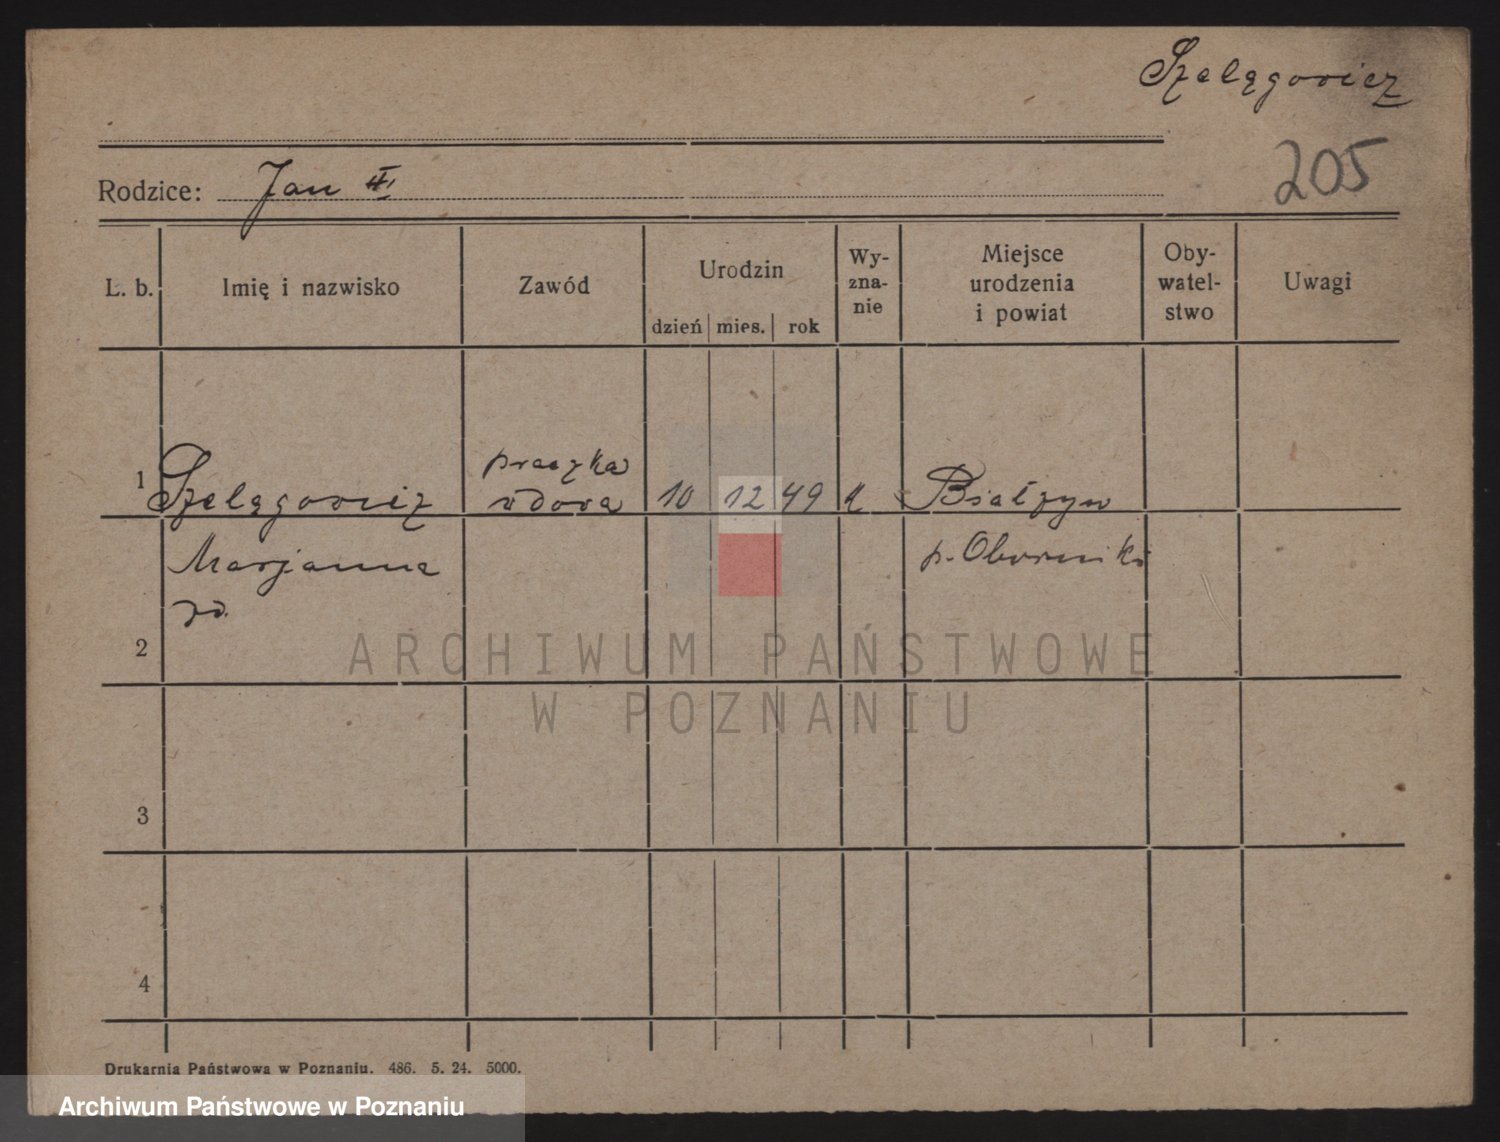 Szelągowicz
205
Rodzice: Jan III
L. b.
Imię i nazwisko
Zawód
Urodzin
dzień
mies.
rok
Wy-
zna-
nie
Miejsce
urodzenia
i powiat
Oby-
watel-
stwo
Uwagi
1
Szelągowicz
Marjanna
praczka
wdowa
10
12
49
Białężyn
p. Oborniki
2
3
4
ARCHIWUM PAŃSTWOWE
W POZNANIU
Drukarnia Państwowa w Poznaniu. 486. 5. 24. 5000.
Archiwum Państwowe w Poznaniu